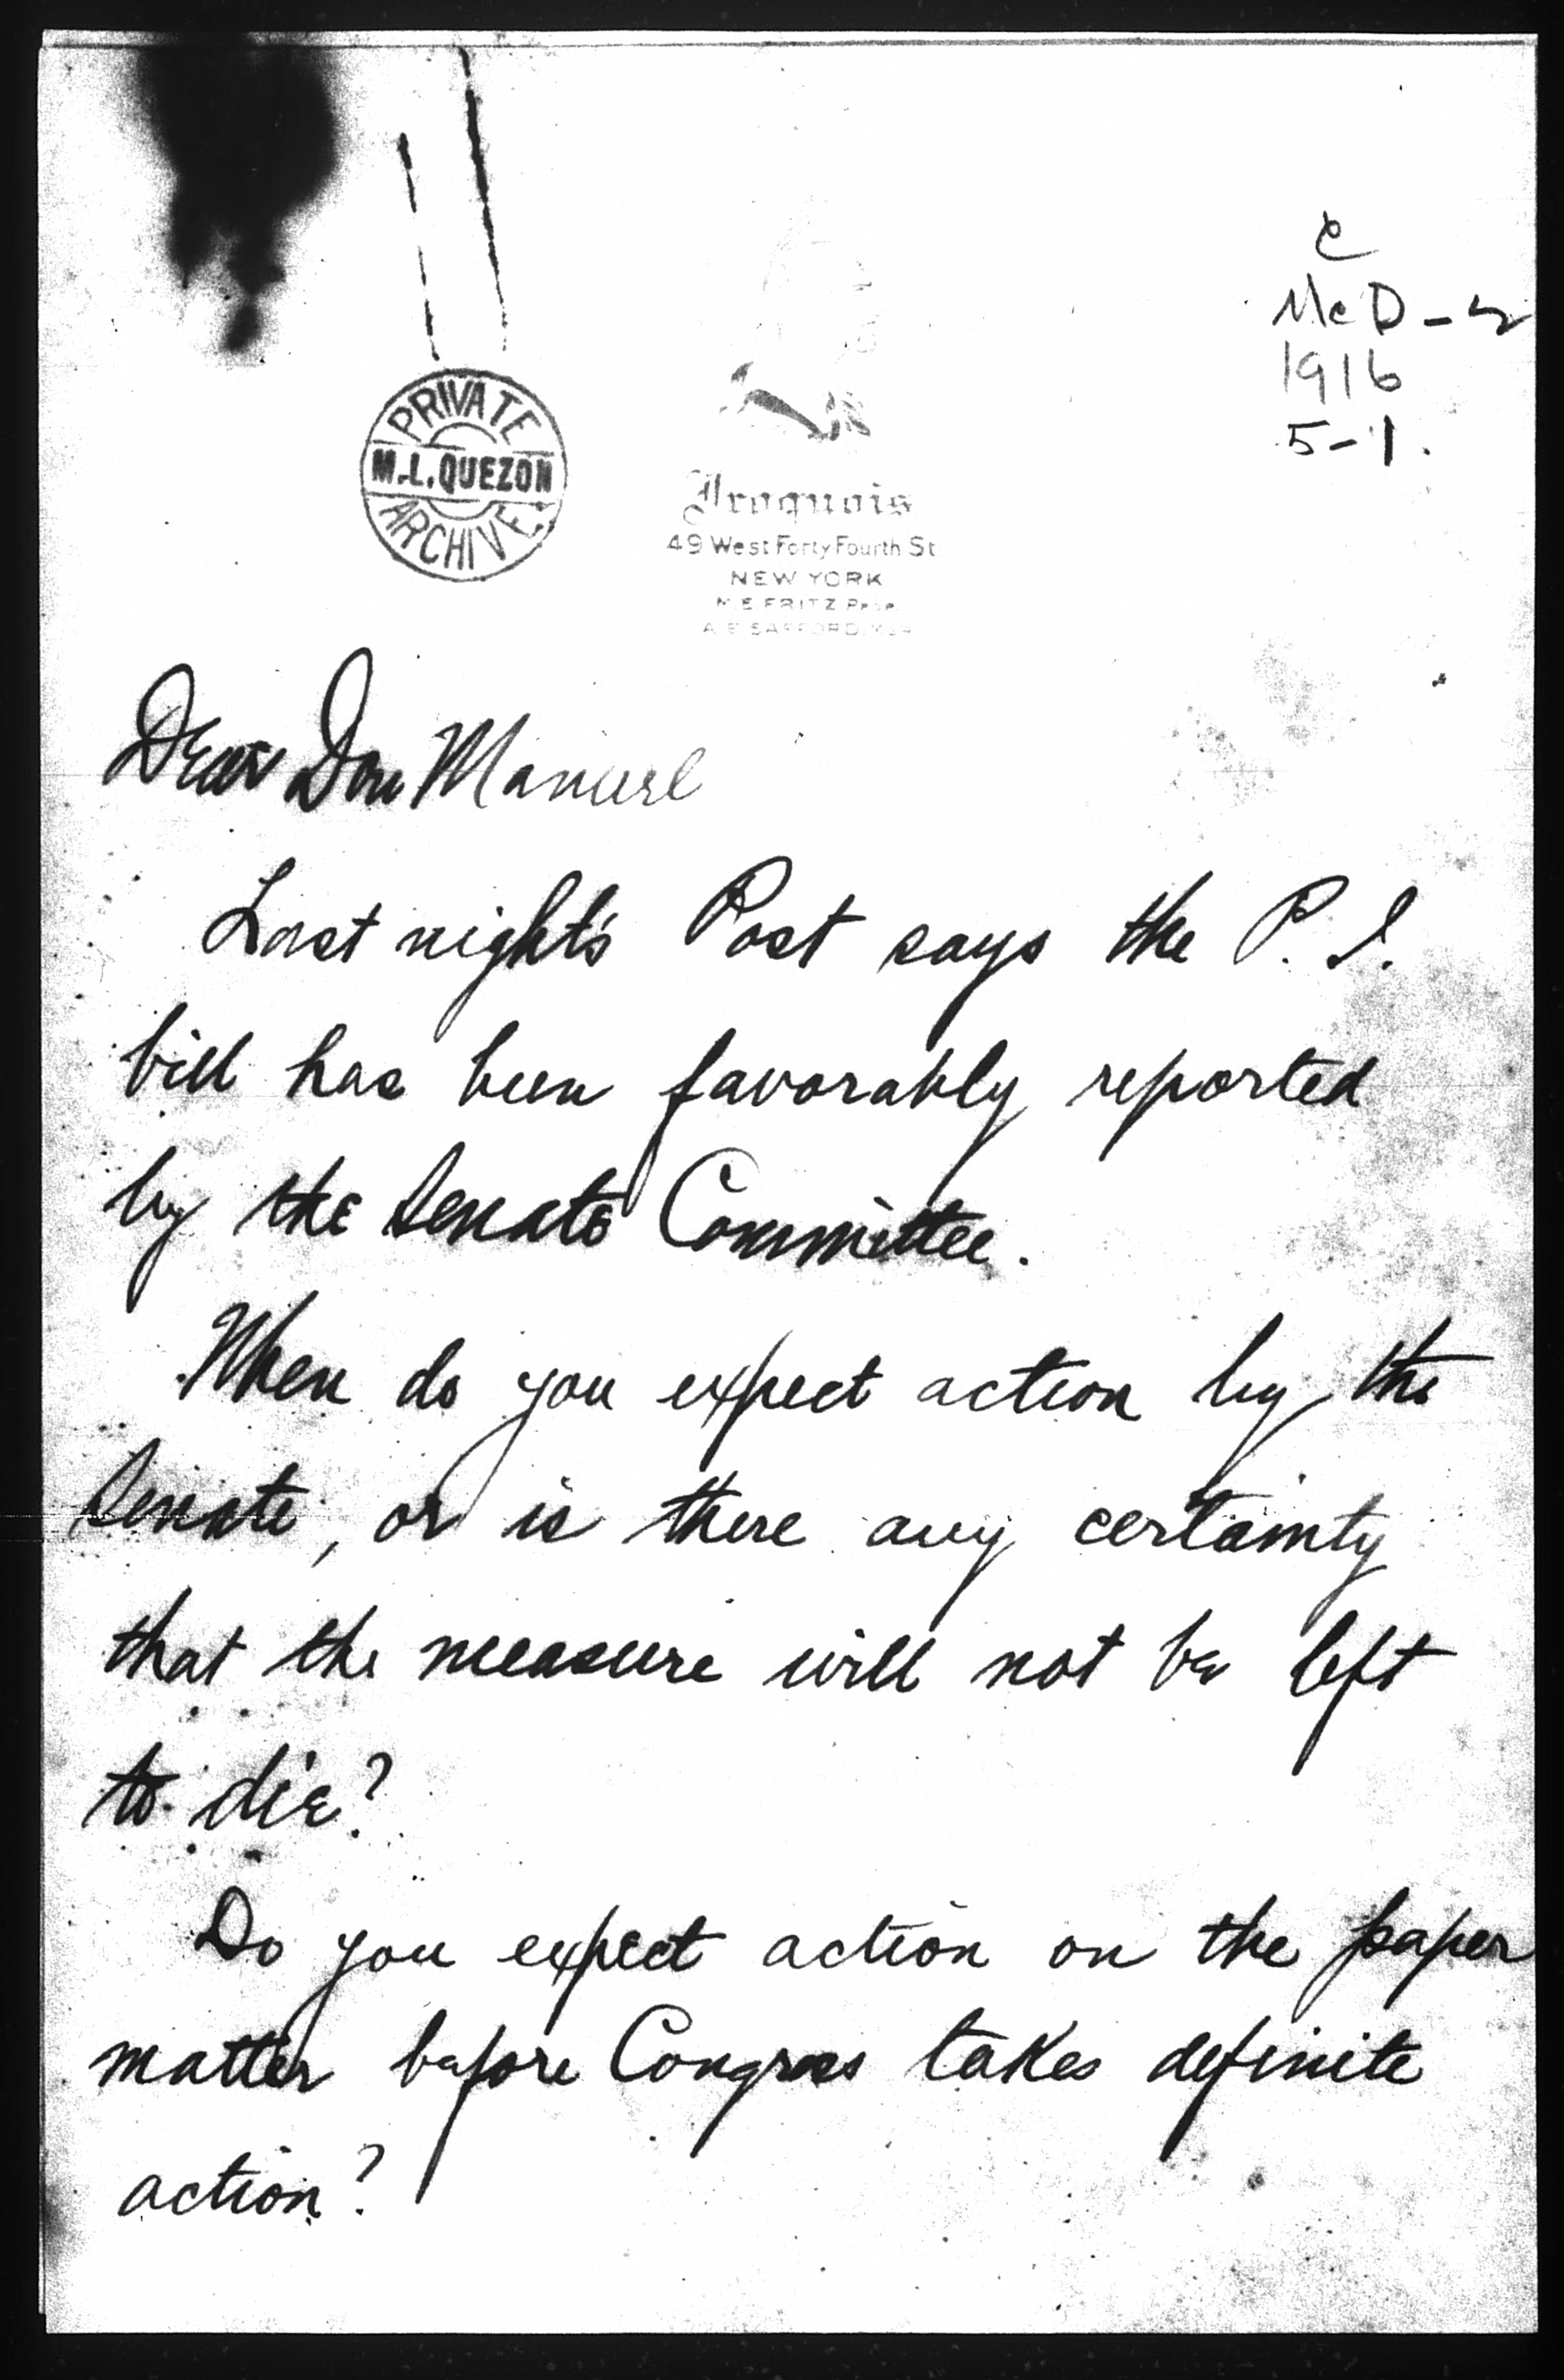 C
McD-
1916
5-1.
PRIVATE
M.L.QUEZON
ARCHIVE
Iroquois
49 West Forty Fourth St
NEW YORK
M E FRITZ Pres.
A E SAFFORD, MGR
Dear Don Manuel
Last night's Post says the P. I.
bill has been favorably reported
by the Senate Committee.
When do you expect action by the
Senate, or is there any certainty
that the measure will not be left
to die?
Do you expect action on the paper
matter before Congress takes definite
action?